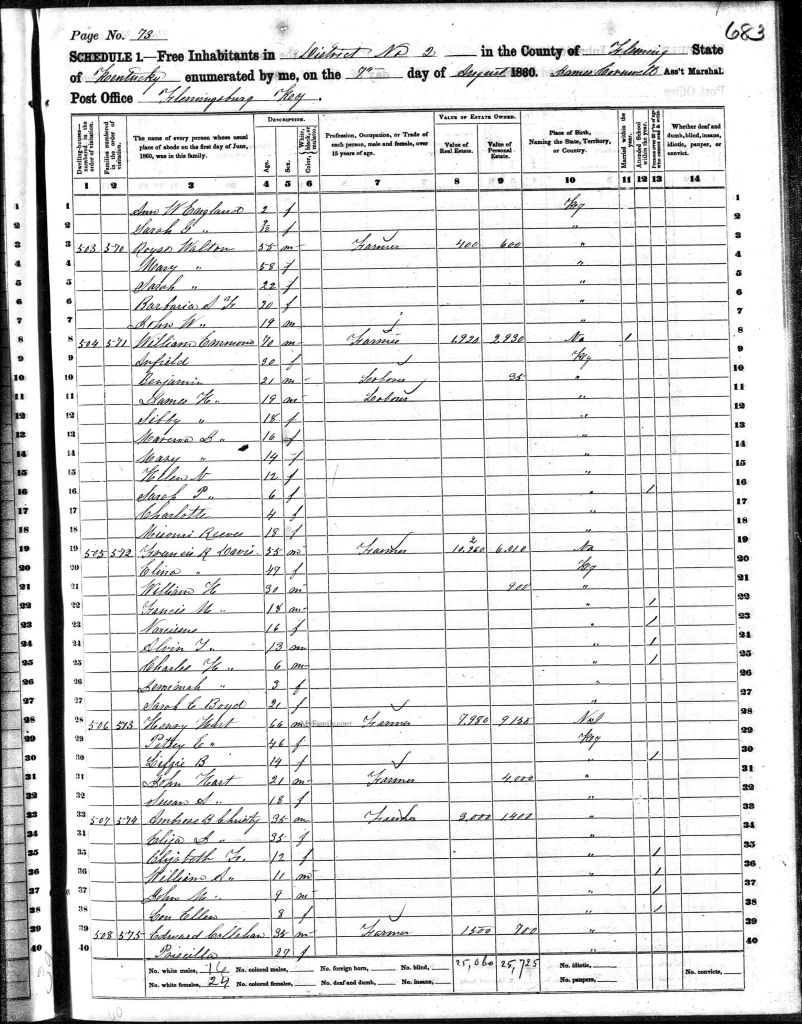 683
Page No. 73
SCHEDULE 1.—Free Inhabitants in District No 2 in the County of Fleming State
of Kentucky enumerated by me, on the 7th day of August 1860. James Cornwell Ass't Marshal.
Post Office Flemingsburg Ky.
Dwelling-houses—numbered in the order of visitation. Families numbered in the order of visitation. The name of every person whose usual place of abode on the first day of June, 1860, was in this family. DESCRIPTION. Age. Sex. Color, White, black, or mulatto. Profession, Occupation, or Trade of each person, male and female, over 15 years of age. VALUE OF ESTATE OWNED. Value of Real Estate. Value of Personal Estate. Place of Birth, Naming the State, Territory, or Country. Married within the year. Attended School within the year. Persons over 20 y'rs of age who cannot read & write. Whether deaf and dumb, blind, insane, idiotic, pauper, or convict.
1 2 3 4 5 6 7 8 9 10 11 12 13 14
1 Ann W England 2 f Ky 1
2 Sarah G " f " 2
3 503 570 Royse Walton 55 m Farmer 400 600 " 3
4 Mary " 58 f " 4
5 Sarah " 22 f " 5
6 Barbaria S F 20 f " 6
7 John W " 19 m " 7
8 504 571 William Emmons 70 m Farmer 1,920 2,930 Va 1 8
9 Infield 30 f Ky 9
10 Benjamin 21 m Labour 35 " 10
11 James H. " 19 m Labour " 11
12 Sibby " 18 f " 12
13 Marerva D " 16 f " 13
14 Mary " 14 f " 14
15 Hellen V 12 f " 15
16 Sarah P " 6 f " 1 16
17 Charlotte 4 f " 17
18 Misouri Reeves 18 f " 18
19 505 572 Francis R Davis 55 m Farmer 10,260 6,010 Va 19
20 Elina " 47 f Ky 20
21 William H 30 m 900 " 21
22 Francis M " 18 m " 1 22
23 Narcissus 16 f " 1 23
24 Alvin T " 13 m " 1 24
25 Charles H " 6 m " 1 25
26 Jemimah " 3 f " 26
27 Sarah C Boyd 21 f " 27
28 506 513 Henry Hart 66 m Farmer 7,980 9,150 28
29 Patsy E " 46 f Ky 29
30 Lizzie B 14 f " 1 30
31 John Hart 21 m Farmer 4,000 " 31
32 Susan S " 18 f " 32
33 507 574 Ambrose B Christy 35 m Farmer 3,000 1400 " 33
34 Eliza J " 35 f " 34
35 Elizabeth F. 12 f " 1 35
36 William S " 11 m " 1 36
37 John M " 9 m " 1 37
38 Lou Ellen 8 f " 1 38
39 508 575 Edward Callahan 35 m Farmer 1500 700 " 39
40 Priscilla 27 f " 40
No. white males, 16 No. colored males, No. foreign born, No. blind, 25,060 25,725 No. idiotic, No. convicts,
No. white females, 24 No. colored females, No. deaf and dumb, No. insane, No. paupers,